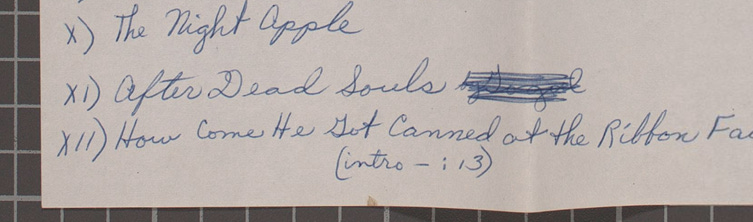 X) The Night Apple
XI) After Dead Souls
XII) How Come He Got Canned at the Ribbon Fac
(intro - : 13)